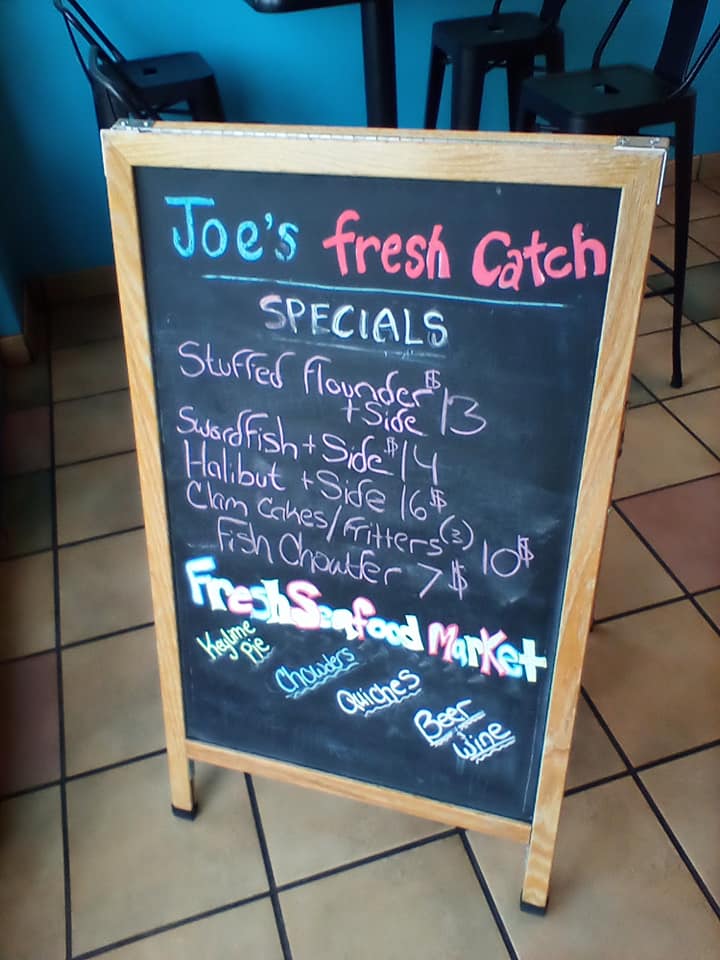 Joe's fresh Catch
SPECIALS
Stuffed Flounder $13
+ Side
Swordfish + Side $14
Halibut + Side 16$
Clam Cakes/Fritters (3) 10$
Fish Chowder 7$
Fresh Seafood Market
Keylime
Pie
Chowders
Quiches
Beer
Wine